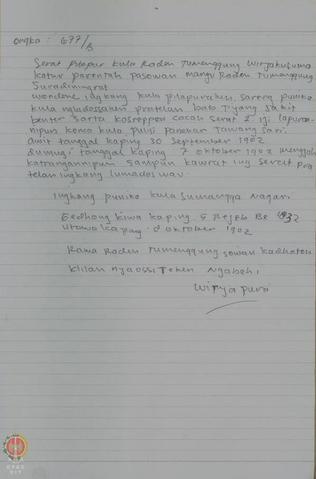 Ongka : 677/B
Serat pilapur kula Raden Tumenggung Wirjakusuma
katur parentah Pasowan Mangu Raden Tumenggung
Suradiningrat
Wondene ingkang kula pilapuraken, sareng puniko
kula ngladosaken pratelan bab Tiyang Sakit
benter sarta kosreppen cacah serat 2 iji lapura-
nipun konco kula, pulisi Panekar Tawang Sari.
amit tanggal kaping 30 September 1902
dumugi tanggal kaping 7 oktober 1902
katranganipun sampun kawrat ing Seret Pra
telan ingkang lumados wau.
Ingkang puniko kula sumangga Nagari
Gedhong kiwa kaping 5 Rejeb Be 1832
utawa kaping 8 oktober 1902
Rama Raden Tumenggung sowan kadhaton
klilan ngaosi Teken Ngabehi
Wirya puri